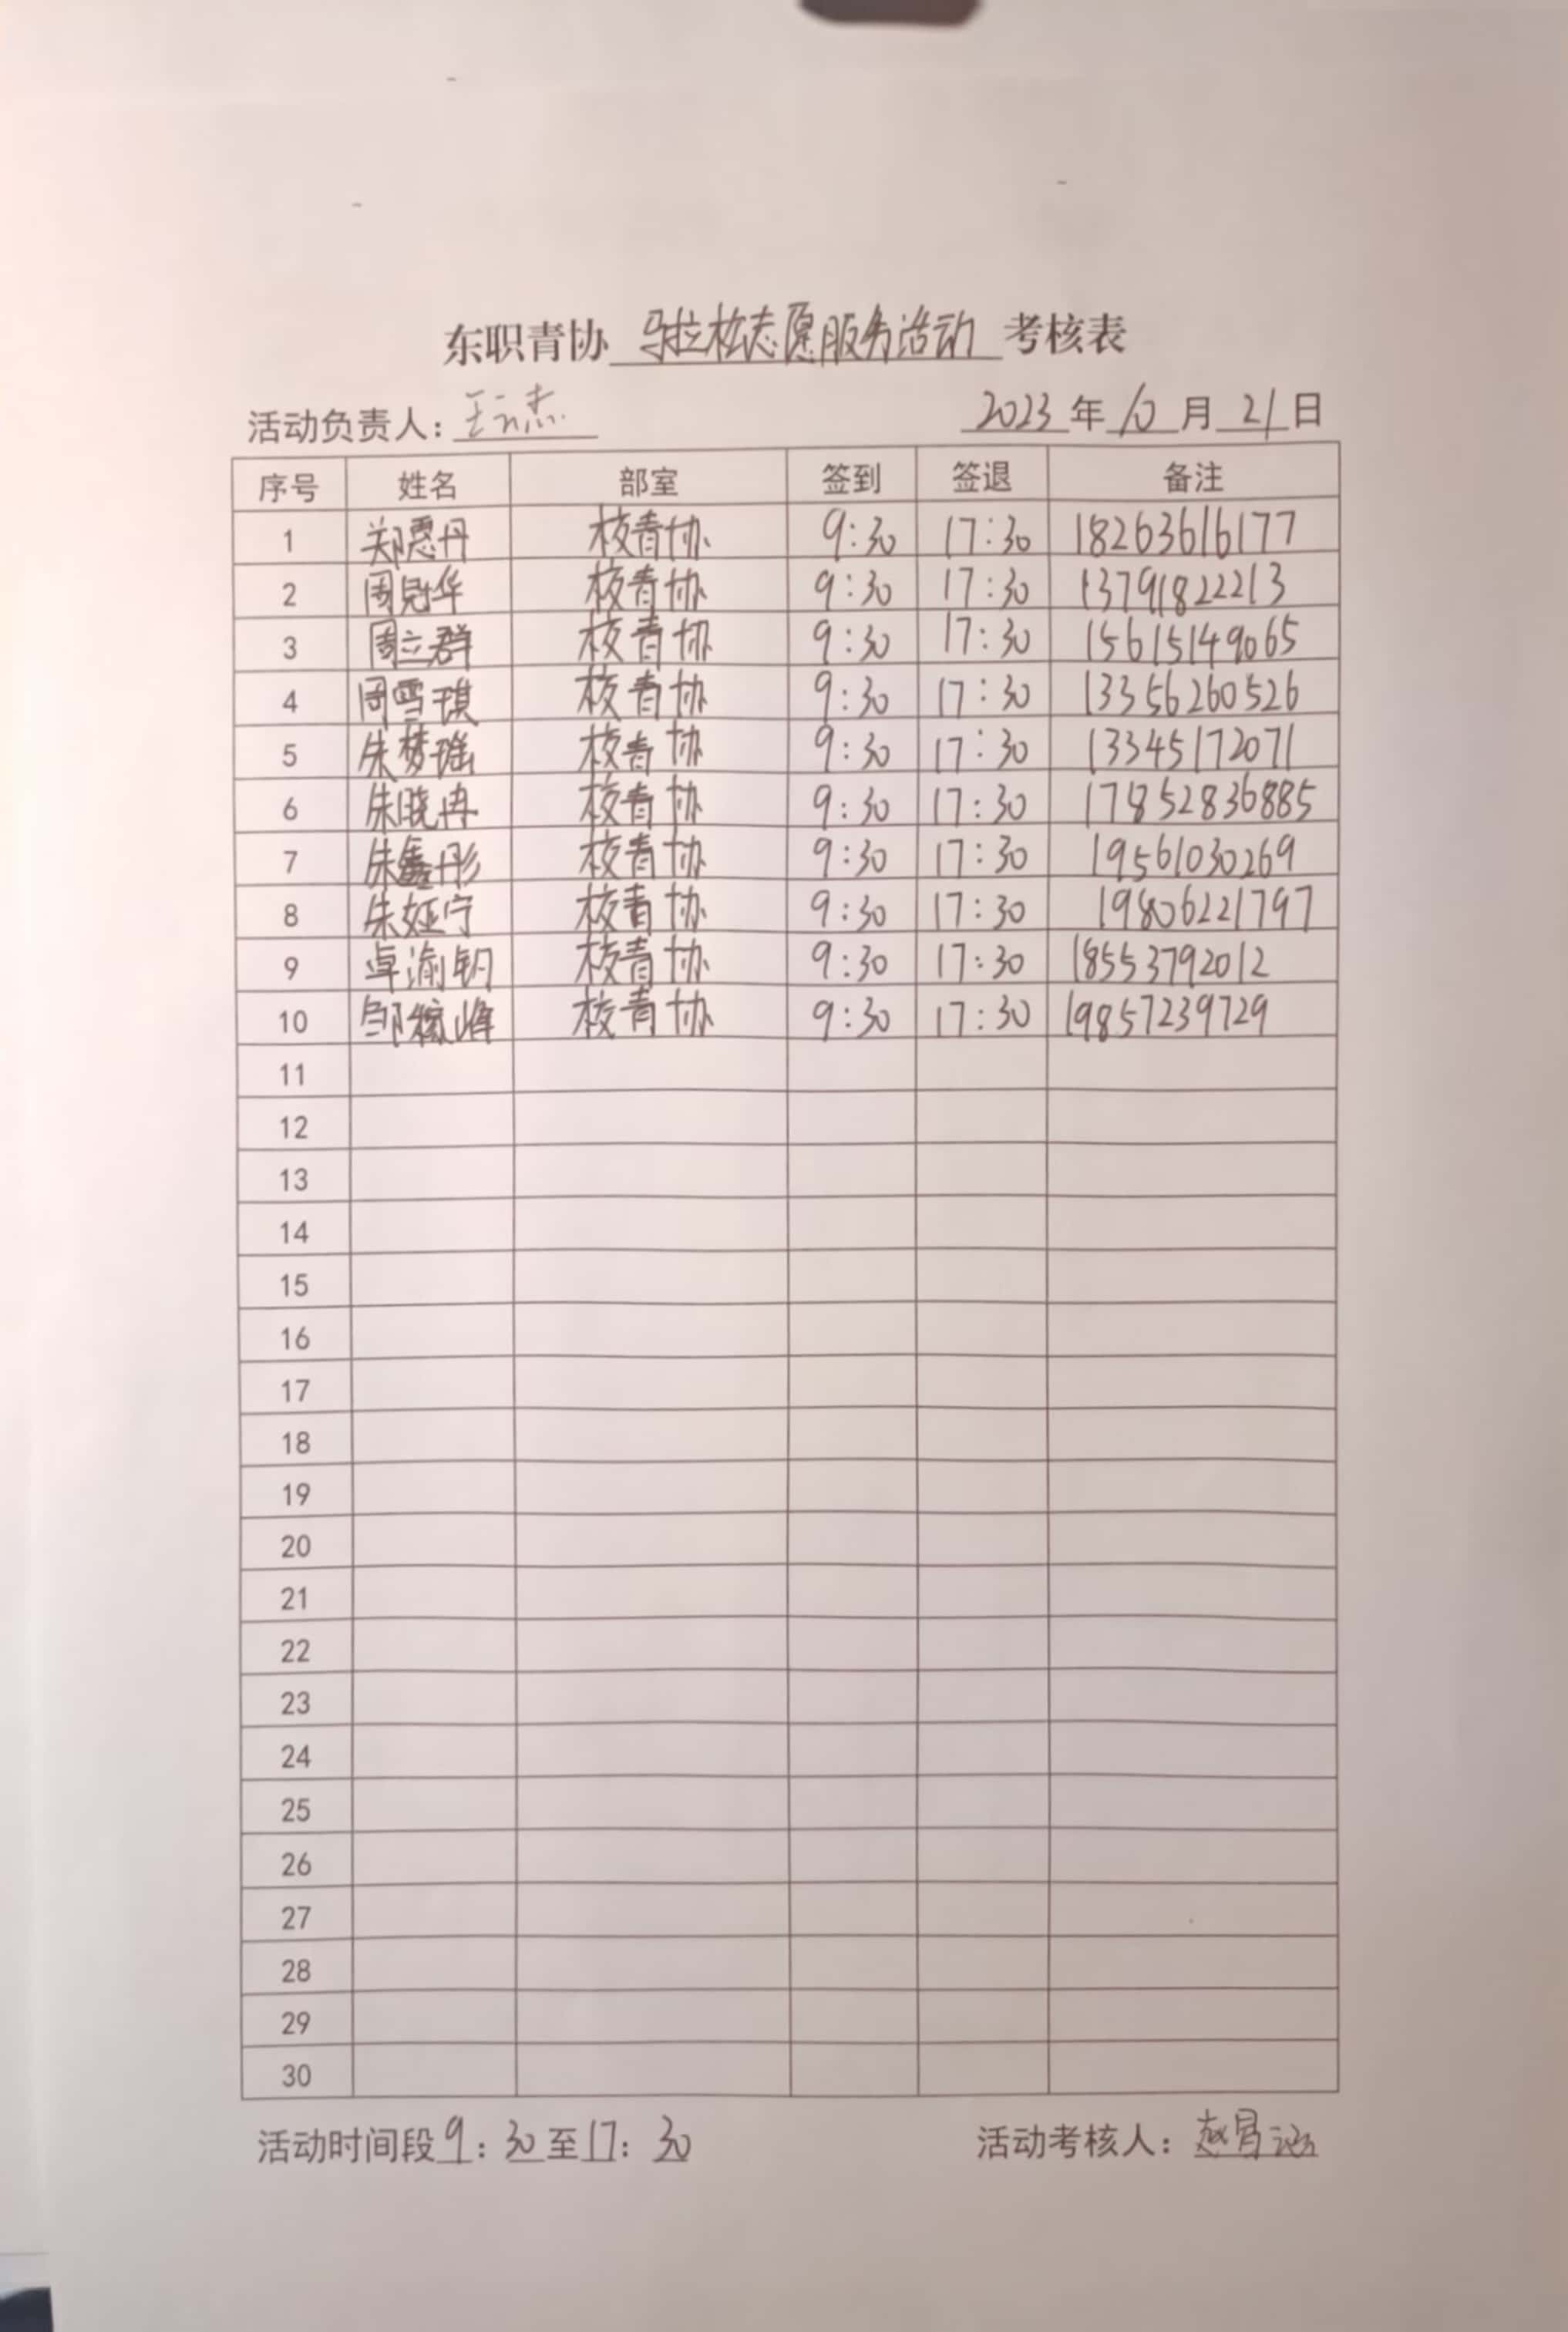 东职青协 马拉松志愿服务活动 考核表
活动负责人: 2023 年 10 月 21 日
序号 姓名 部室 签到 签退 备注
1 郑愿丹 校青协 9:30 17:30 18263616177
2 周冠华 校青协 9:30 17:30 13791822213
3 周立群 校青协 9:30 17:30 15615149065
4 周雪琪 校青协 9:30 17:30 13356260526
5 朱梦瑶 校青协 9:30 17:30 13345172071
6 朱晓冉 校青协 9:30 17:30 17852836885
7 朱鑫彤 校青协 9:30 17:30 19561030269
8 朱娅宁 校青协 9:30 17:30 19806221797
9 卓渝钥 校青协 9:30 17:30 18553792012
10 邹稼峰 校青协 9:30 17:30 19857239729
11
12
13
14
15
16
17
18
19
20
21
22
23
24
25
26
27
28
29
30
活动时间段 9: 30 至 17: 30 活动考核人: